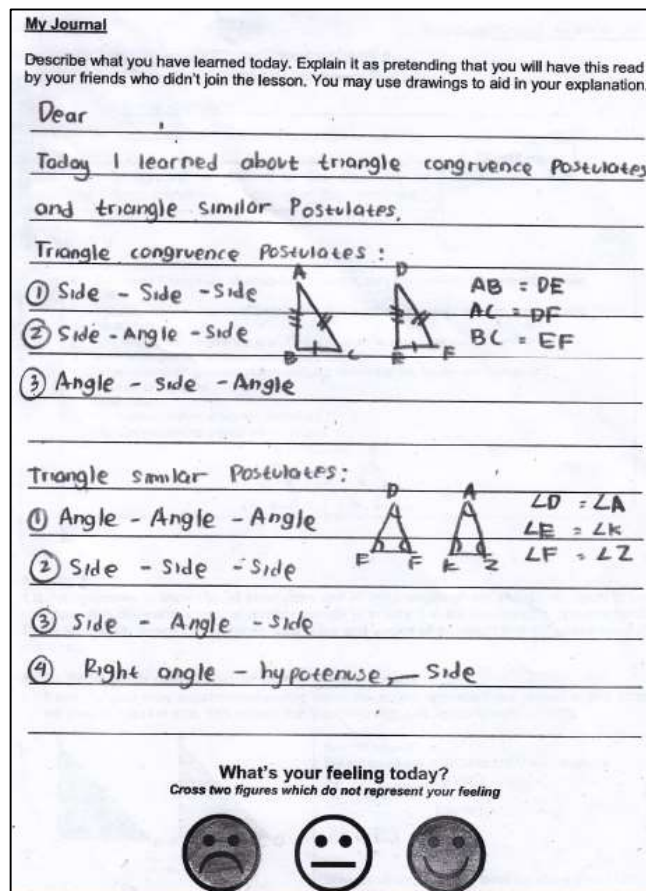 My Journal
Describe what you have learned today. Explain it as pretending that you will have this read
by your friends who didn't join the lesson. You may use drawings to aid in your explanation.
Dear ,
Today I learned about triangle congruence Postulates
and triangle similar Postulates.
Triangle congruence Postulates :
① Side - Side - Side
② Side - Angle - Side
③ Angle - Side - Angle
A
B C
D
E F
AB = DE
AC = DF
BC = EF
Triangle similar Postulates:
① Angle - Angle - Angle
② Side - Side - Side
③ Side - Angle - Side
④ Right angle - hypotenuse, - Side
D
E F
A
K Z
∠D = ∠A
∠E = ∠K
∠F = ∠Z
What's your feeling today?
Cross two figures which do not represent your feeling